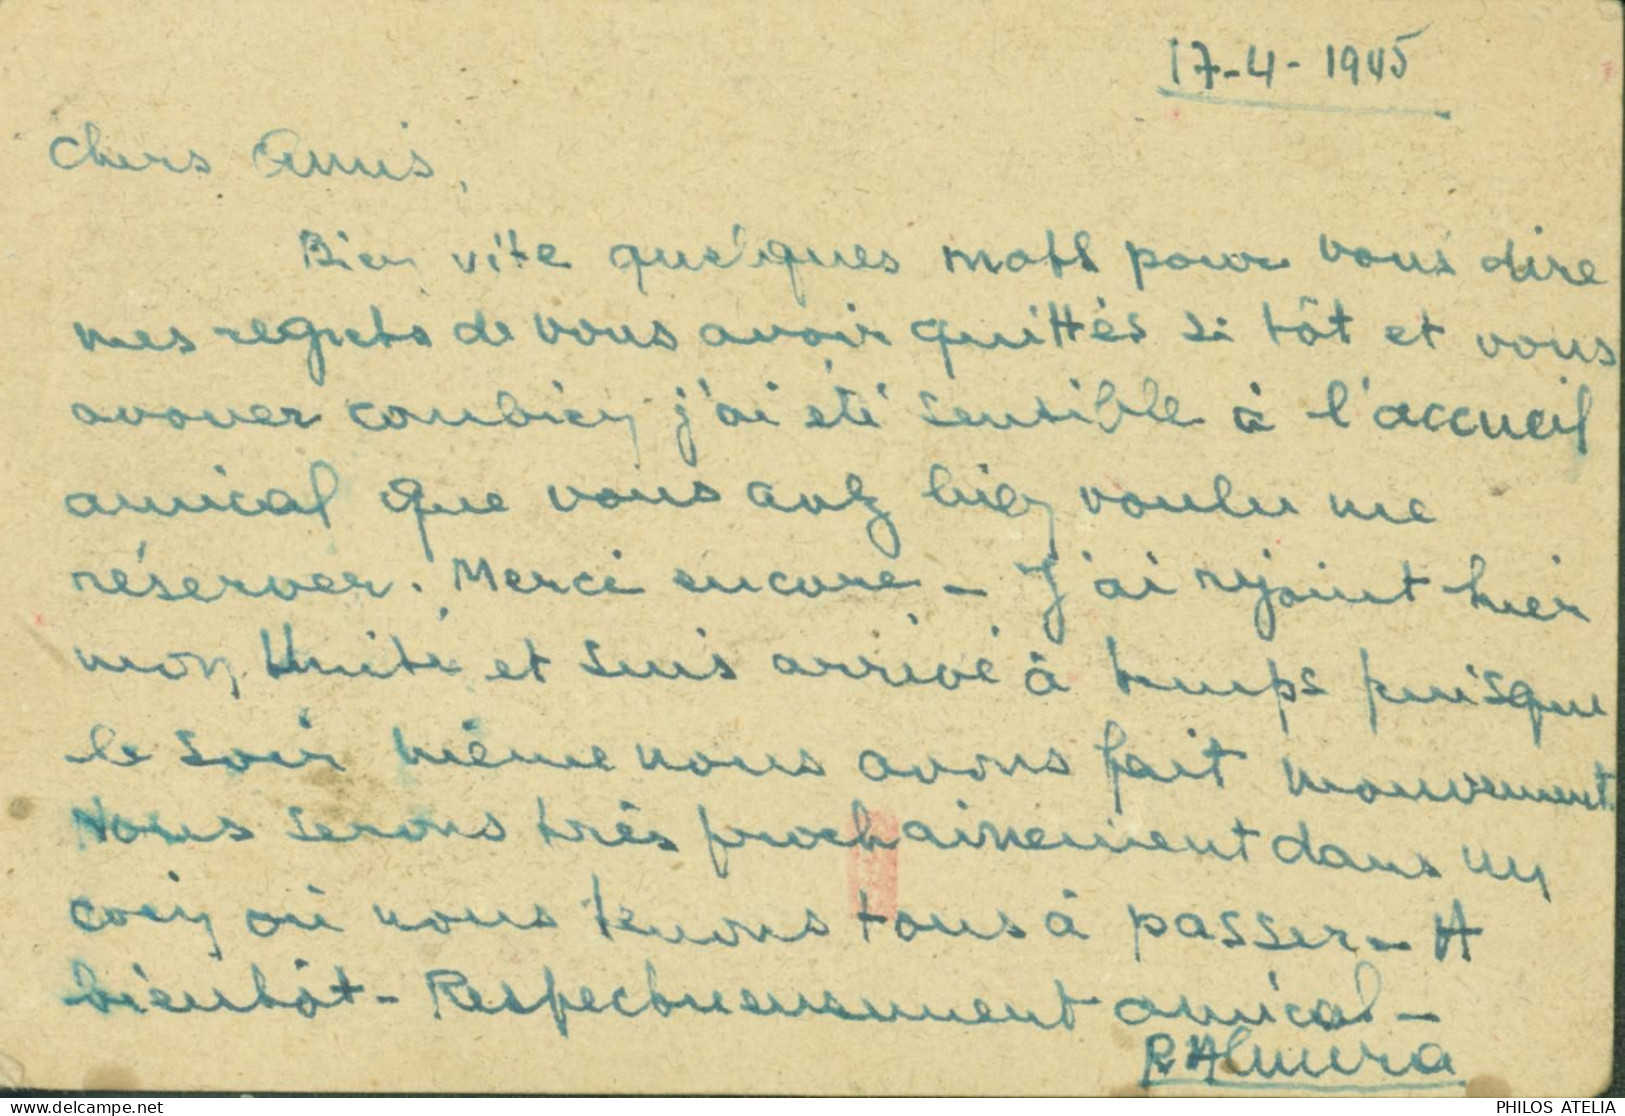 17-4-1945
Chers Amis,
Bien vite quelques mots pour vous dire
mes regrets de vous avoir quittés si tôt et vous
avouer combien j'ai été sensible à l'accueil
amical que vous avez bien voulu me
réserver. Merci encore - J'ai rejoint hier
mon Unité et suis arrivé à temps puisque
le soir même nous avons fait mouvement.
Nous serons très prochainement dans un
coin où nous tenons tous à passer - A
bientôt - Respectueusement amical -
R Almera
PHILOS ATELIA